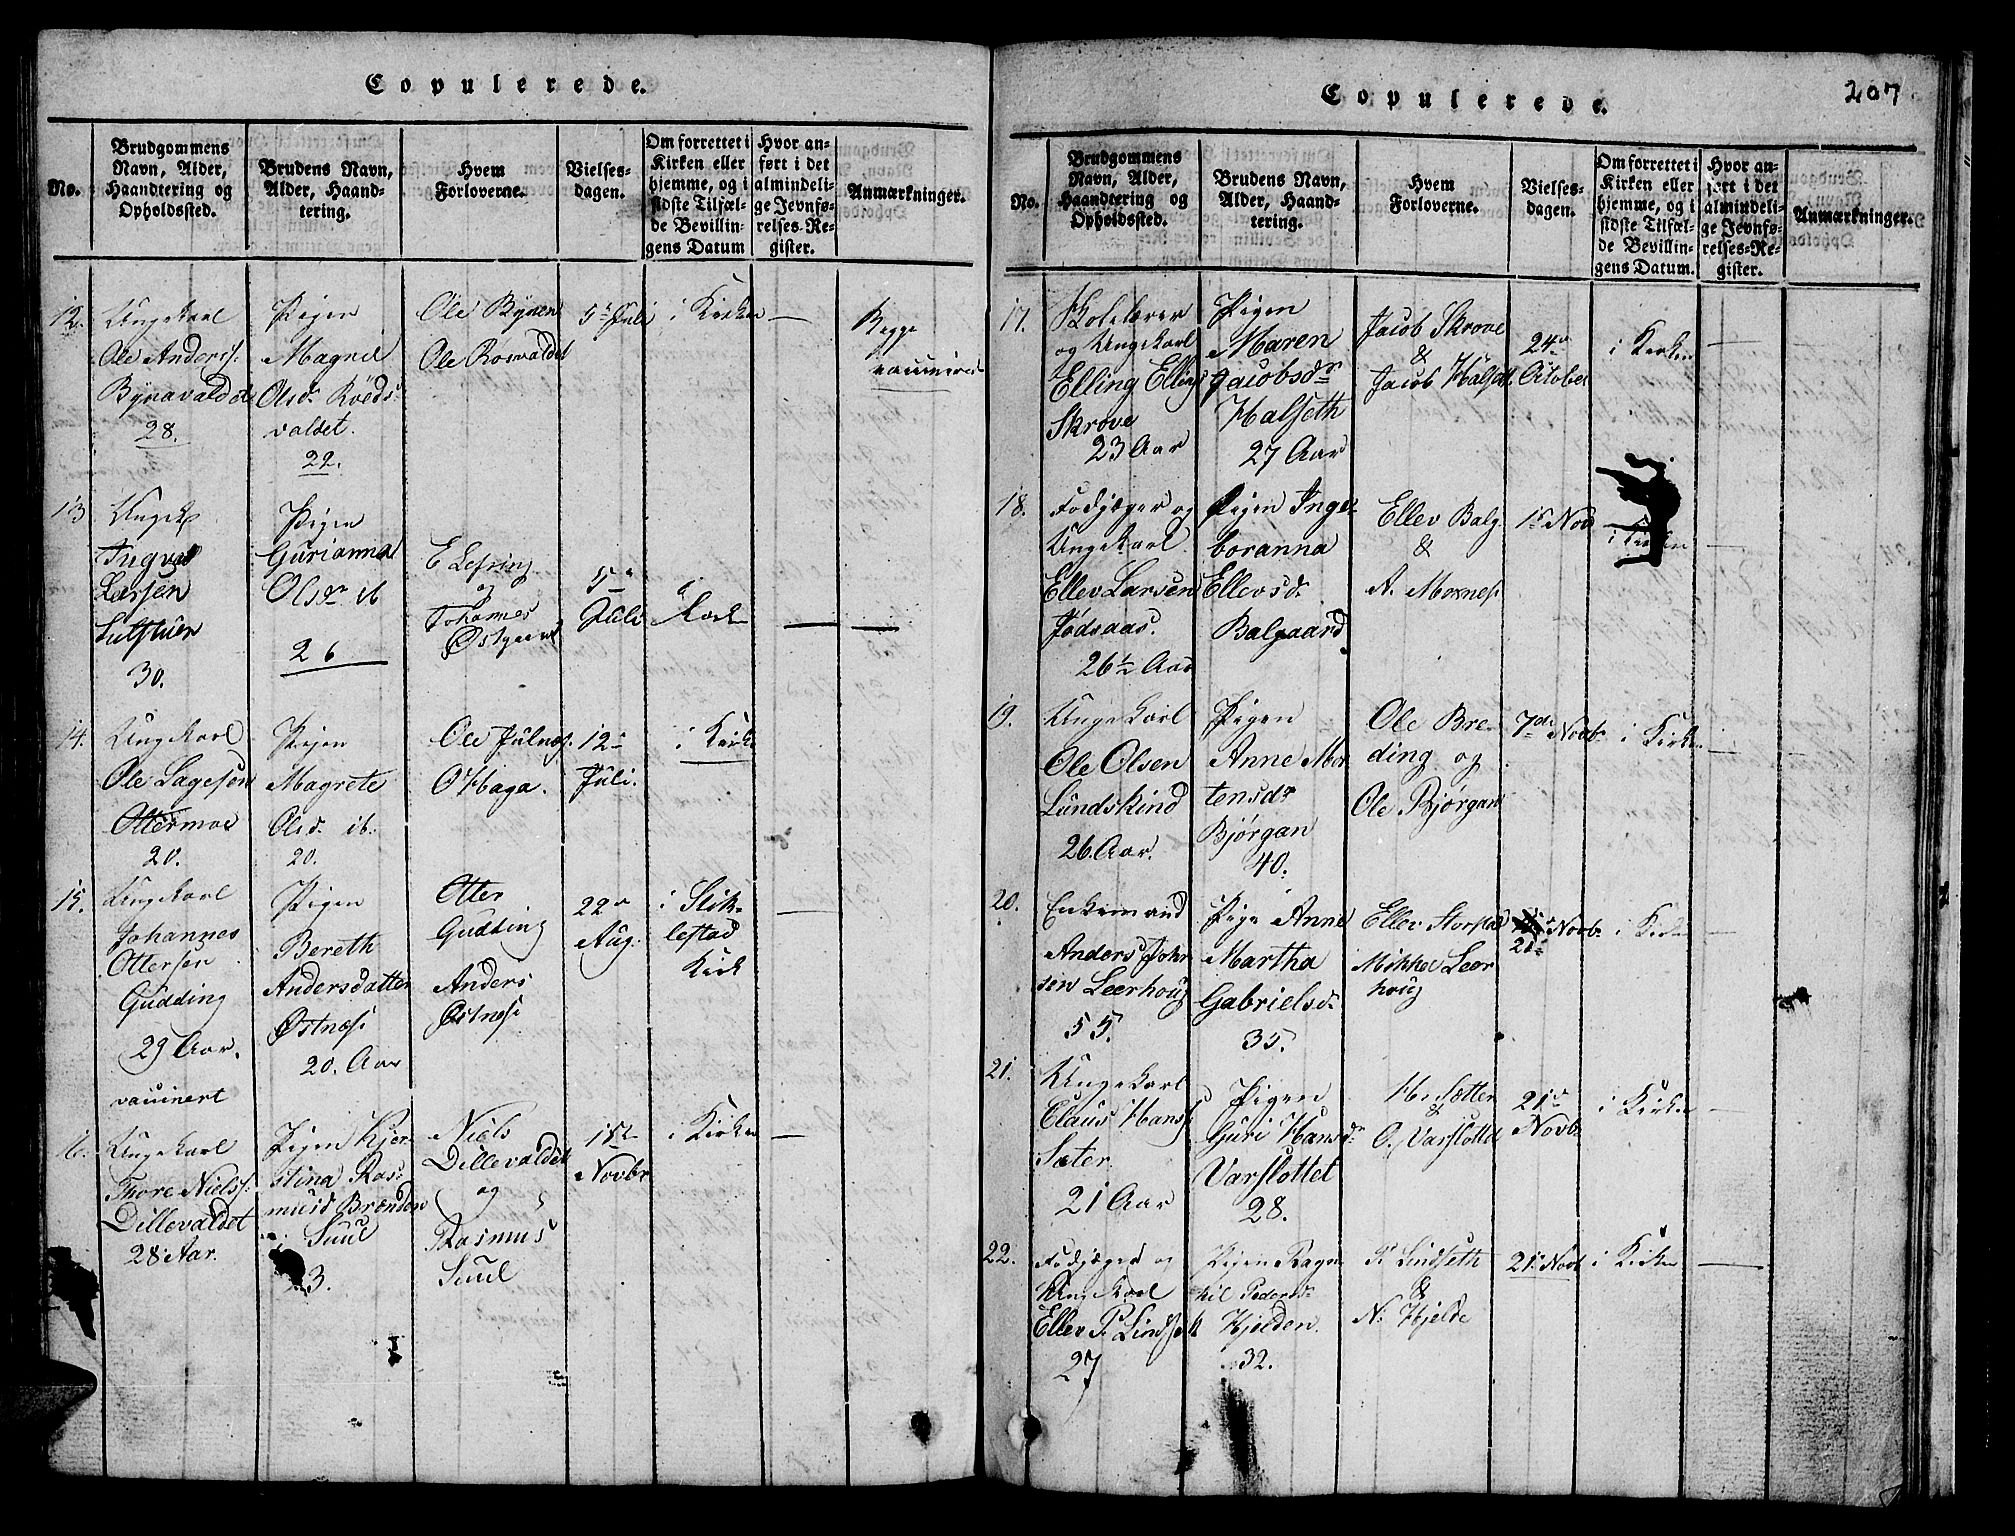 Copulerede.
No.
Brudgommens
Navn, Alder,
Haandtering og
Opholdssted.
Brudens Navn,
Alder, Haand-
tering.
Hvem
Forloverne.
Vielses-
dagen.
Om forrettet i
Kirken eller
hjemme, og i
sidste Tilfæl-
de Bevillin-
gens Datum
Hvor an-
ført i det
almindeli-
ge Jevnfø-
relses-Re-
gister.
Anmærkninger.
12.
Ungekarl
Ole Anderss.
Bynavaldet
28.
Pigen
Magnil
Olsdr
valdet.
22.
Ole Bynen
Ole Rosvaldet
5te Juli
i Kirken
Begge
vaccinerede
13
Ungek
Ingvel
Larsen
30.
Pigen
Gurianna
Olsdr ib
26
og
Johannes
Østgaard
5te
Juli
14.
Ungekarl
Ole Lagesen
Ottermoe
20.
Pigen
Magrete
Olsd. ib.
20.
Ole Julnes.
O Haga.
12te
Juli.
i Kirke
15.
Ungekarl
Johannes
Ottersen
Gudding
29 Aar.
vaccinert
Pigen
Bereth
Andersdatter
Østnæs
20. Aar
Otter
Gudding
Anders
Østnæs
22de
Aug.
i Stik-
lestad
Kirk
16.
Ungekarl
Thore Nielss.
Dillevaldet
28 Aar.
Pigen Kjer-
stina Ras-
musd Brænden
Suul
23.
Niels
Dillevaldet
og
Rasmus
Suul
1ste
Novbr
i Kirken
Copulerede.
207
No.
Brudgommens
Navn, Alder,
Haandtering og
Opholdssted.
Brudens Navn,
Alder, Haand-
tering.
Hvem
Forloverne.
Vielses-
dagen.
Om forrettet i
Kirken eller
hjemme, og i
sidste Tilfæl-
de Bevillin-
gens Datum.
Hvor an-
ført i det
almindeli-
ge Jevnfø-
relses-Re-
gister.
Anmærkninger.
17.
Skolelærer
og Ungekarl
Elling Ellings
Skrove
23 Aar
Pigen
Maren
Jacobsdr
Halseth
27 Aar
Jacob Skrove
&
Jacob Halset
24de
October
i Kirken
18.
Fodjæger og
Ungekarl
Ellev Larsen
Jødsaas.
26 1/2 Aar
Pigen Inge-
boranna
Ellevsd.
Balgaard
Ellev Balg.
&
A. Moxnes.
1ste Nov
i Kirken
19.
Ungekarl
Ole Olsen
Lundskind
26. Aar.
Pigen
Anne Mor-
tensdr
Bjørgan
40.
Ole Bre-
ding og
Ole Bjørgan
7de Novbr
i Kirken
20.
Enkemand
Anders John-
sen Leerhoug
55.
Pige Anne
Martha
Gabrielsd.
35.
Mikkel Leer-
houg
21de
Novbr
i Kirken
21.
Ungekarl
Claus Hanss
Sæter.
21 Aar
Pigen
Guri Hansdr
Varslottet
28.
H. Sætter
&
O. Varslottet
21de
Novbr
i Kirken
22.
Fodjæger og
Ungekarl
Ellev P. Lindseth
27
Pigen Ragn-
hil Pedersdr
Hjelden.
32.
P. Lindseth
&
N. Hjelde
21de Novb
i Kirken